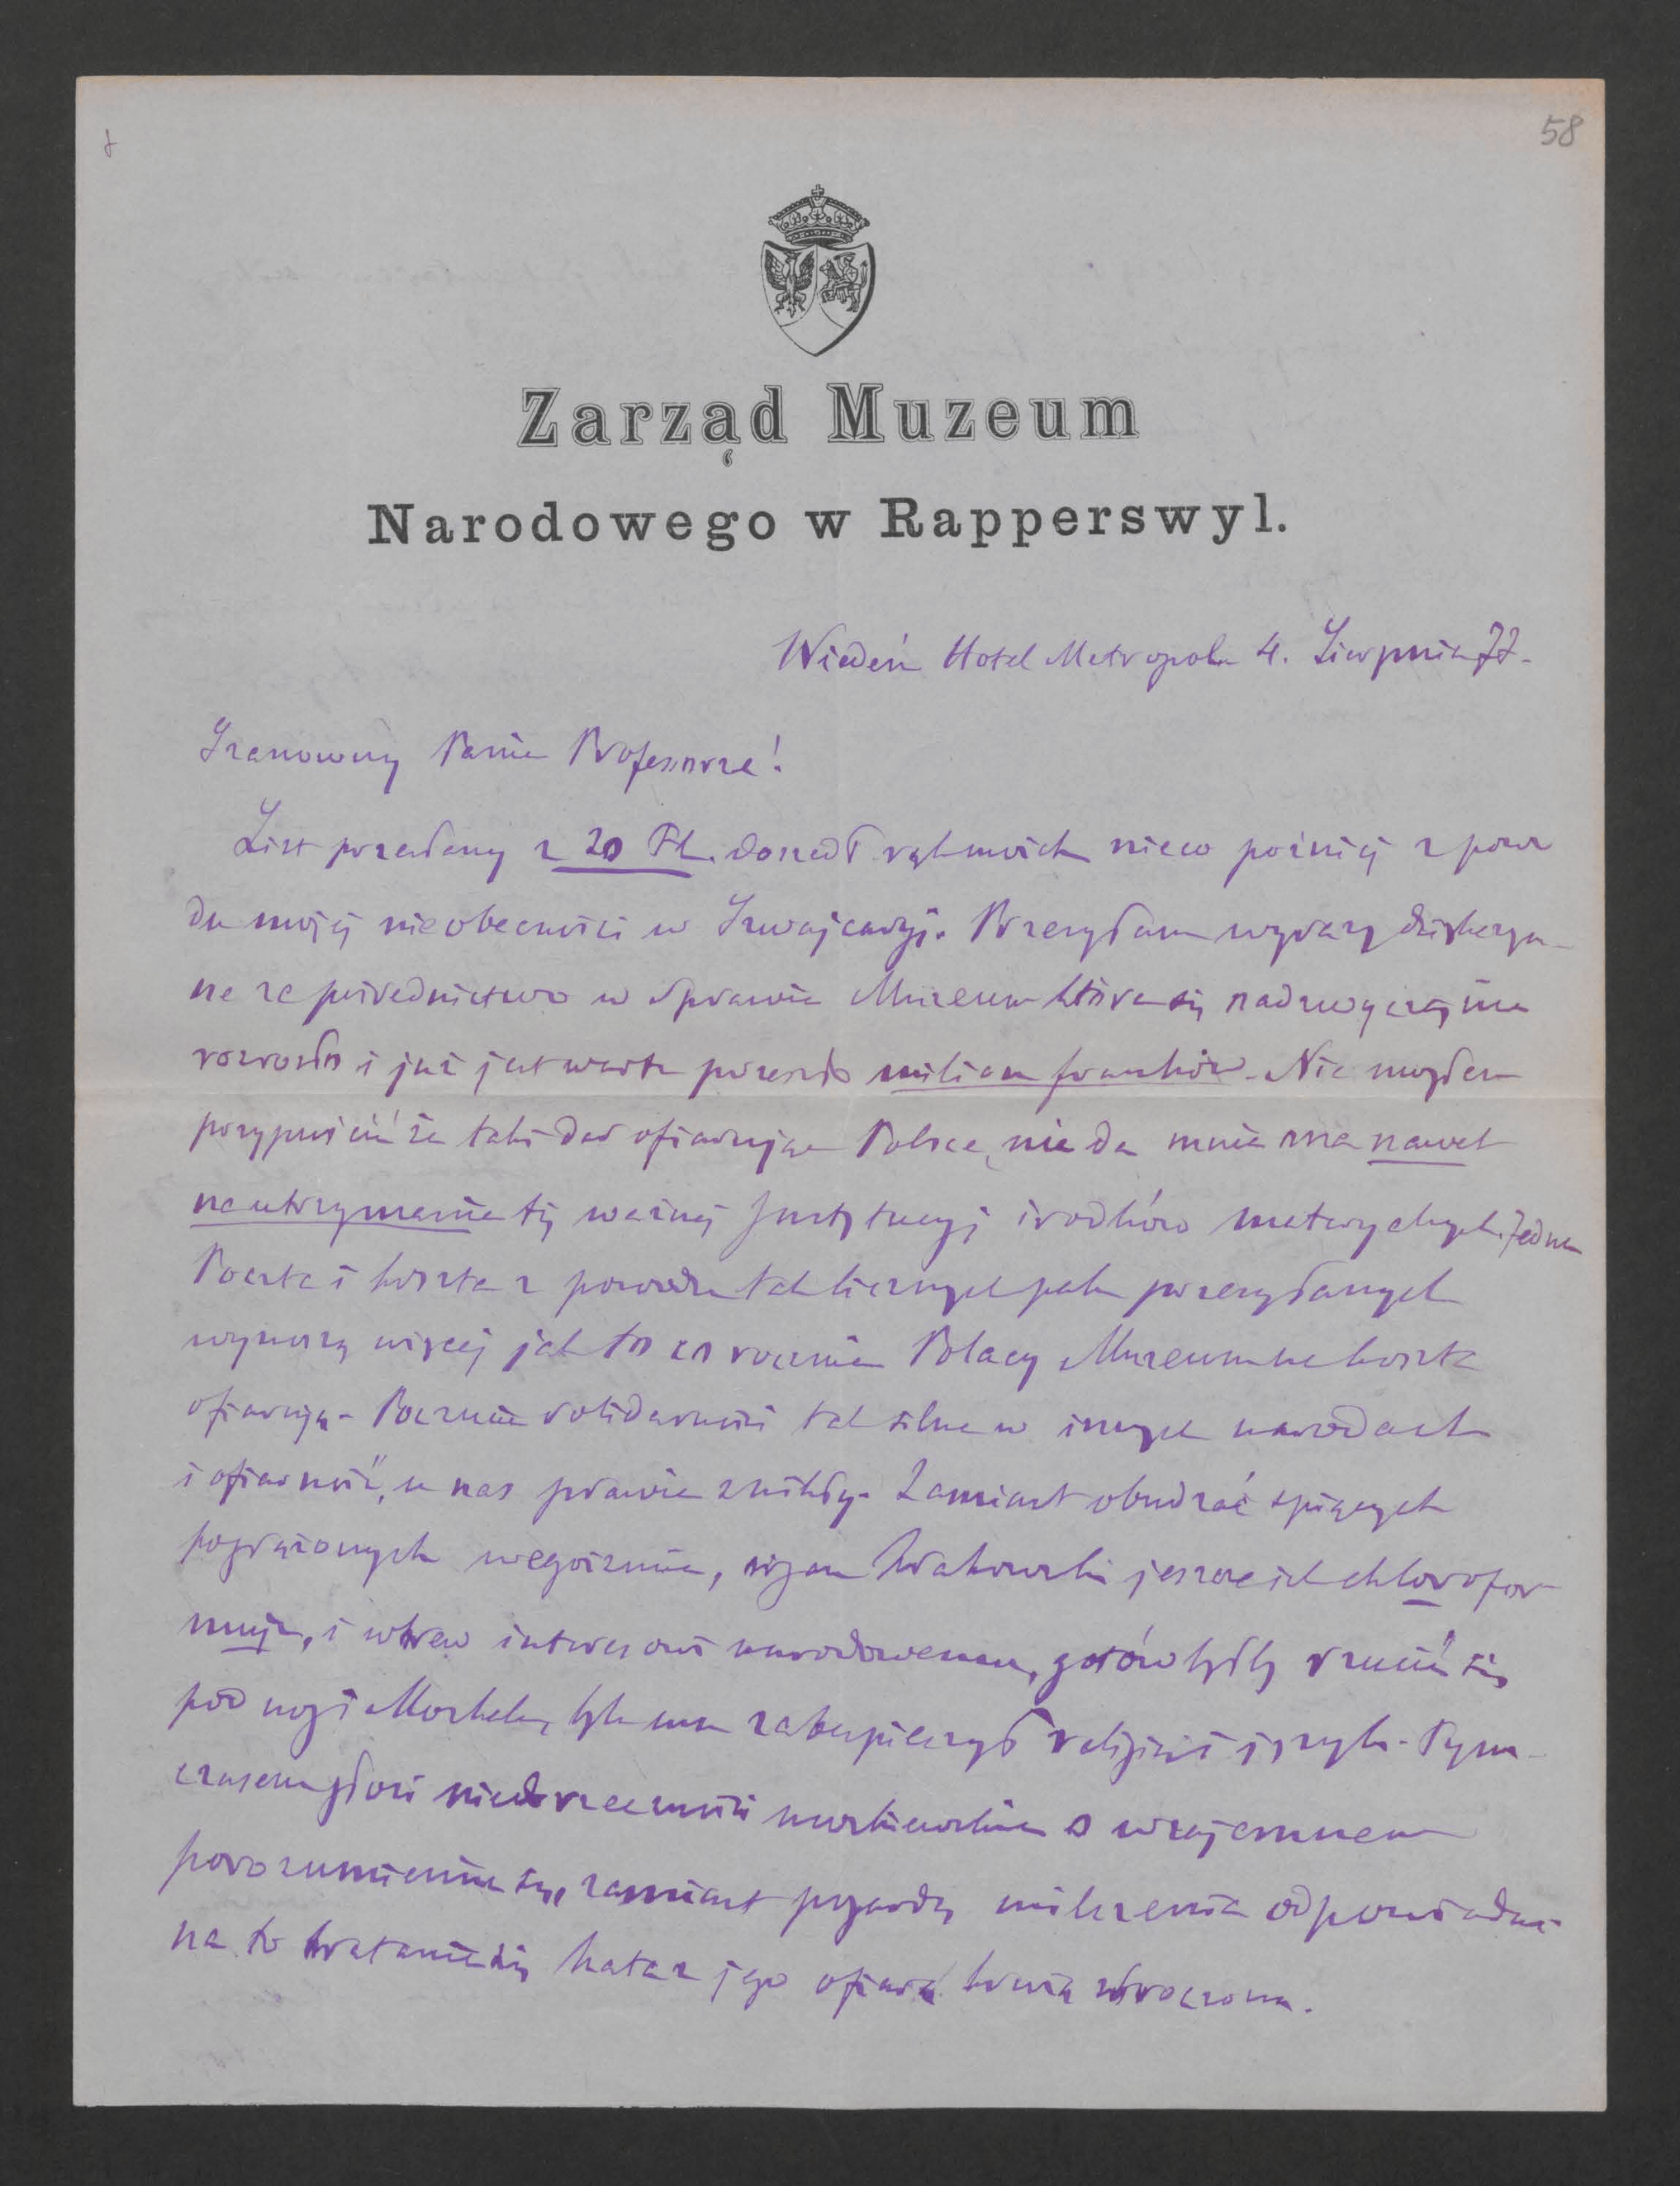 58
Zarząd Muzeum
Narodowego w Rapperswyl.
Wiedeń Hotel Metropole 4. Sierpnia 77.
Szanowny Panie Profesorze!
List przesłany z 20 Fl. doszedł rąk moich nieco poźniej z powo
du mojej nieobecności w Szwajcaryi. Przesyłam wyrazy dziękczyn-
ne za pośrednictwo w sprawie Muzeum które się nadzwyczajnie
rozrosło i już jest warte przeszło milion franków. Nie mogłem
przypuścić że taki dar ofiarując Polsce, nie da mnie ona nawet
na utrzymanie tej ważnej Instytucyi środków materyalnych. Jedna
Poczta i koszta z powodu tak licznych pak przesyłanych
wynoszą więcej jak to co rocznie Polacy Muzeum na koszta
ofiarują. Poczucie solidarności tak silne w innych narodach
i ofiarność, u nas prawie znikły. Zamiast obudzać śpiących
pogrążonych w egoizmie, organ Krakowski jeszcze ich chlorofor-
muje, i wbrew interesowi narodowemu, gotów byłby rzucić się
pod nogi Moskala, byle mu zabezpieczył religię i język. Tym-
czasem głosi niedorzeczności o wzajemnem
porozumieniu się, zamiast pogardą milczenia odpowiadać
na to bratanie się kata z jego ofiarą krwią zbroczoną.